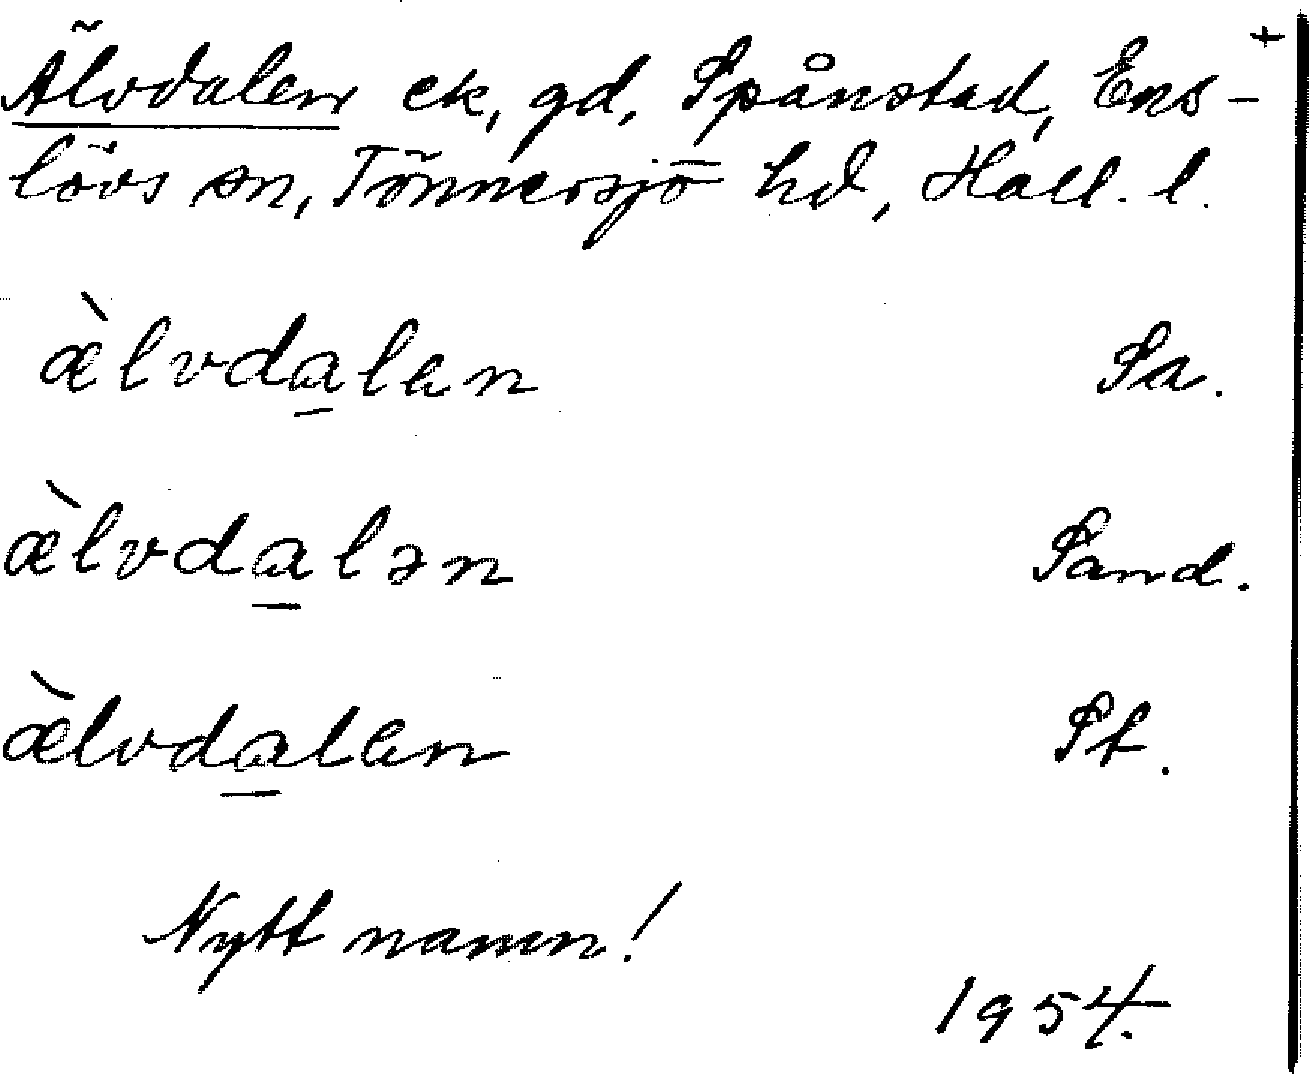 Älvdalen ek, gd, Spånstad, Ens- +
lövs sn, Tönnersjö hd, Hall. l.
æ̀lvda̱len Sa.
æ̀lvda̱lən Sand.
æ̀lvda̱len St.
Nytt namn!
1954.